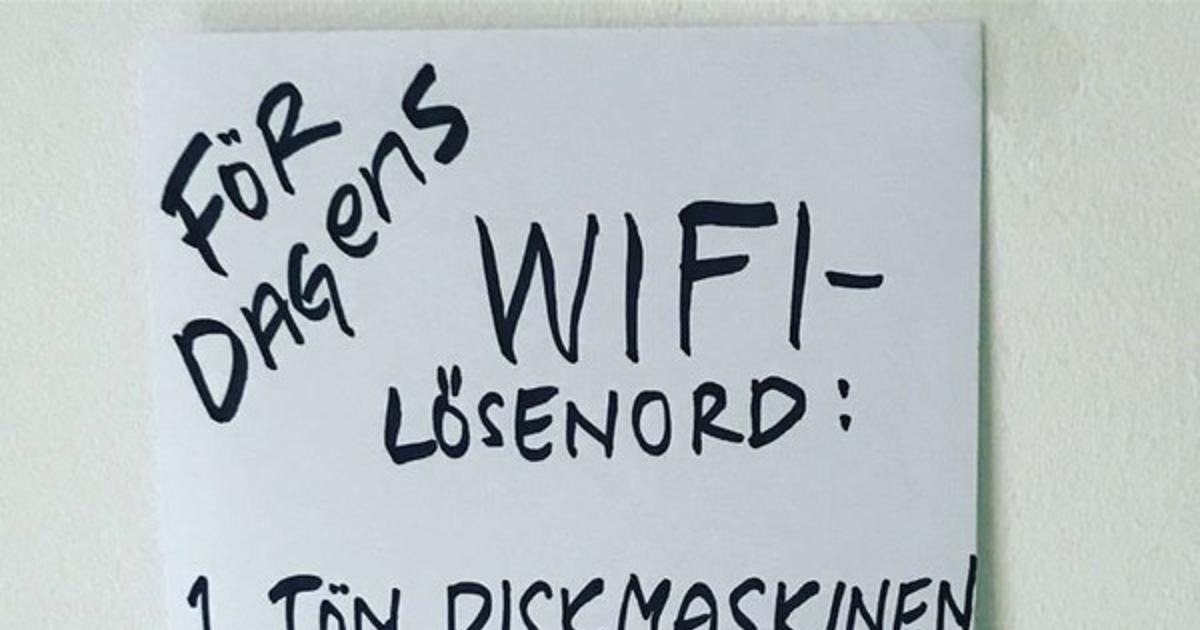 FÖR
DAGenS
WIFI-
LÖSENORD:
1 TÖM DISKMASKINEN